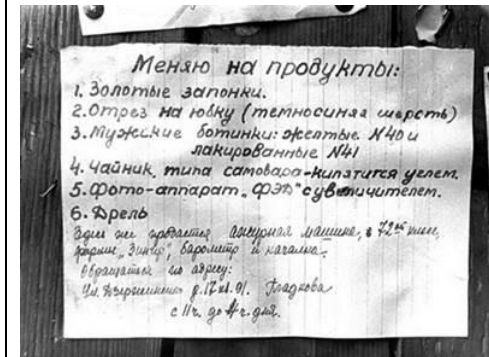 Меняю на продукты:
1. Золотые запонки.
2. Отрез на юбку (темносиняя шерсть)
3. Мужские ботинки: желтые №40 и
лакированные №41
4. Чайник типа самовара-кипятится углем.
5. Фото-аппарат „ФЭД" с увеличителем.
6. Дрель
Здесь же продается ажурная машина, в 72
фирмы „Зингер", барометр и качалка.
Обращаться по адресу:
Ул. Дзержинского д. 17 кв. 91. Гладкова
с 11 ч. до 4 ч. дня.